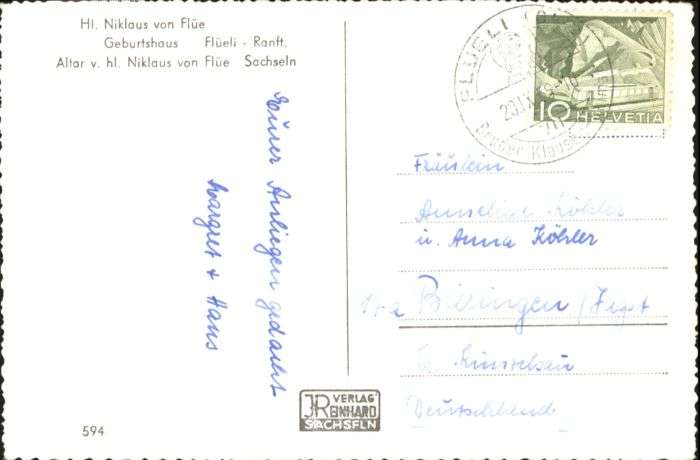 Hl. Niklaus von Flüe
Geburtshaus Flüeli - Ranft.
Altar v. hl. Niklaus von Flüe Sachseln
Eurer Anliegen gedacht
Margret + Hans
594
VERLAG
REINHARD
SACHSELN
FLUELI
Bruder Klausen
10 HELVETIA
Fräulein
Anneliese Köhler
u. Anna Köhler
Deutschland